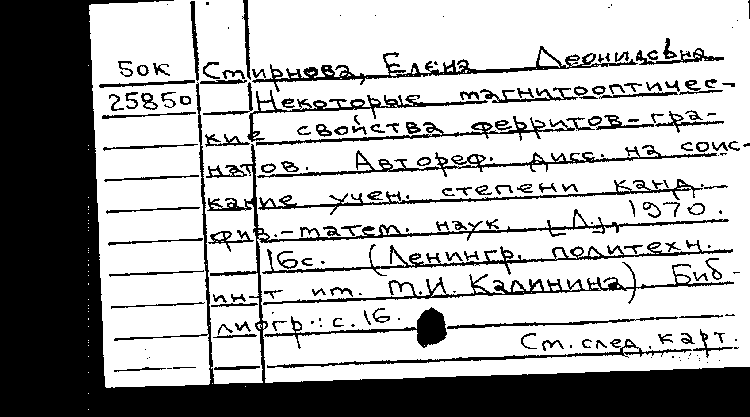 50к Смирнова, Елена Леонидовна
25850 Некоторые магнитооптичес-
кие свойства ферритов-гра-
натов. Автореф. дисс. на соис-
кание учен. степени канд.
физ.-матем. наук. [Л.], 1970.
16с. (Ленингр. политехн.
ин-т им. М.И. Калинина). Биб-
лиогр.: с.16.
См. след. карт.